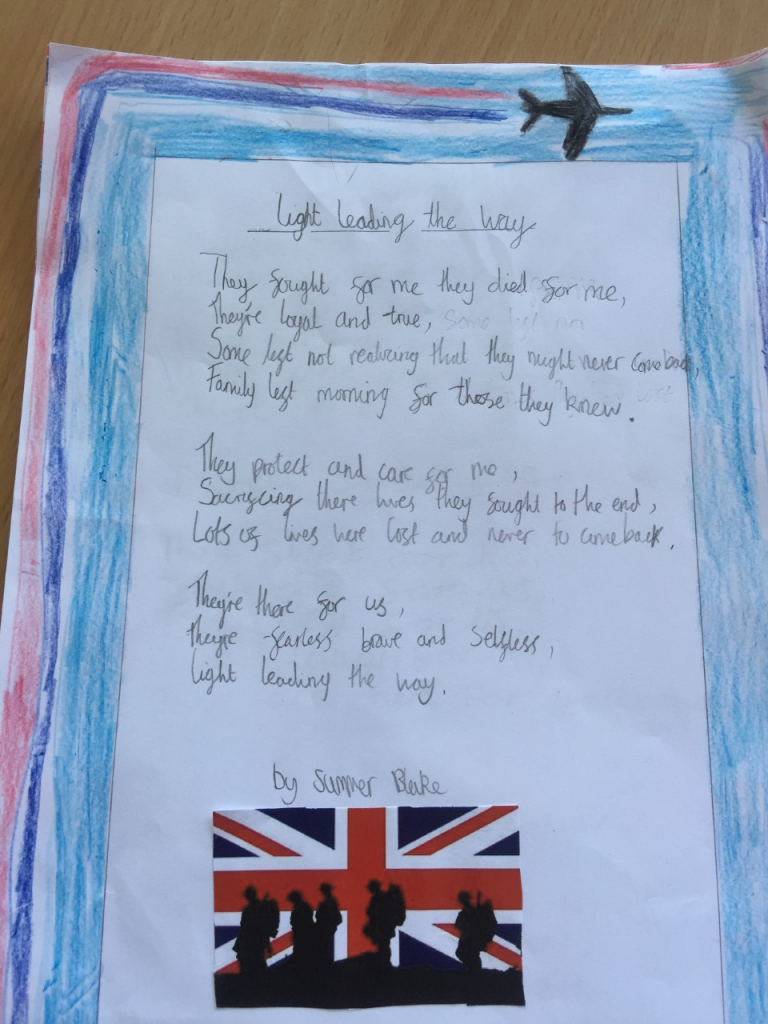 Light Leading the Way
They fought for me they died for me,
They're loyal and true,
Some left not realising that they might never come back,
Family left morning for those they knew.
They protect and care for me,
Sacrificing there lives they fought to the end,
Lots of lives were lost and never to come back.
They're there for us,
They're fearless brave and selfless,
Light leading the way.
by Summer Blake